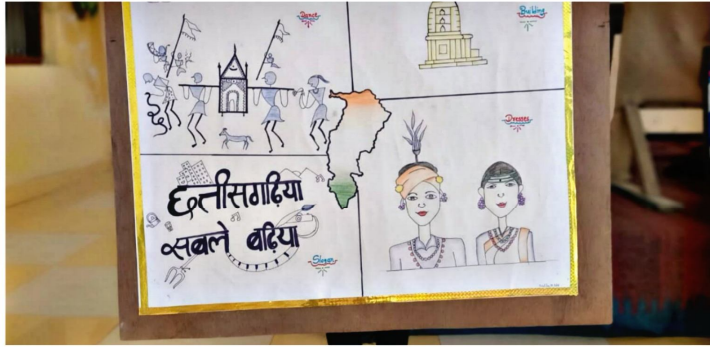 Dance
Building
Dresses
छत्तीसगढ़िया
सबले बढ़िया
Slogan